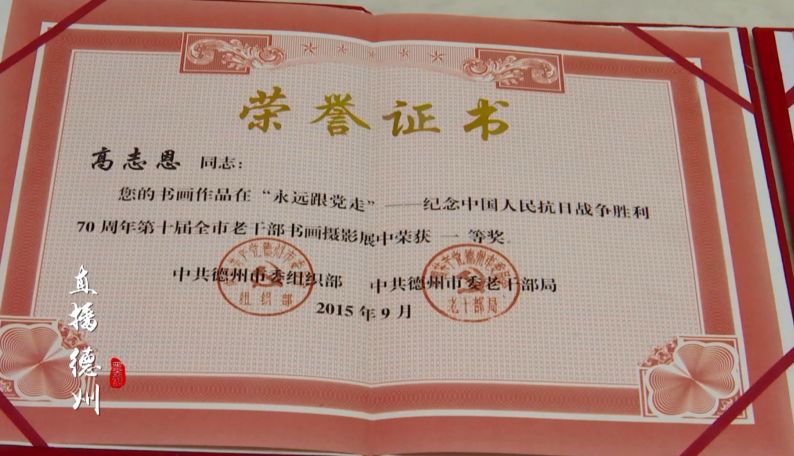 荣誉证书
高志恩 同志：
您的书画作品在“永远跟党走”——纪念中国人民抗日战争胜利
70周年第十届全市老干部书画摄影展中荣获 一 等奖
中共德州市委组织部 中共德州市委老干部局
2015年9月
组织部
老干部局
直播德州